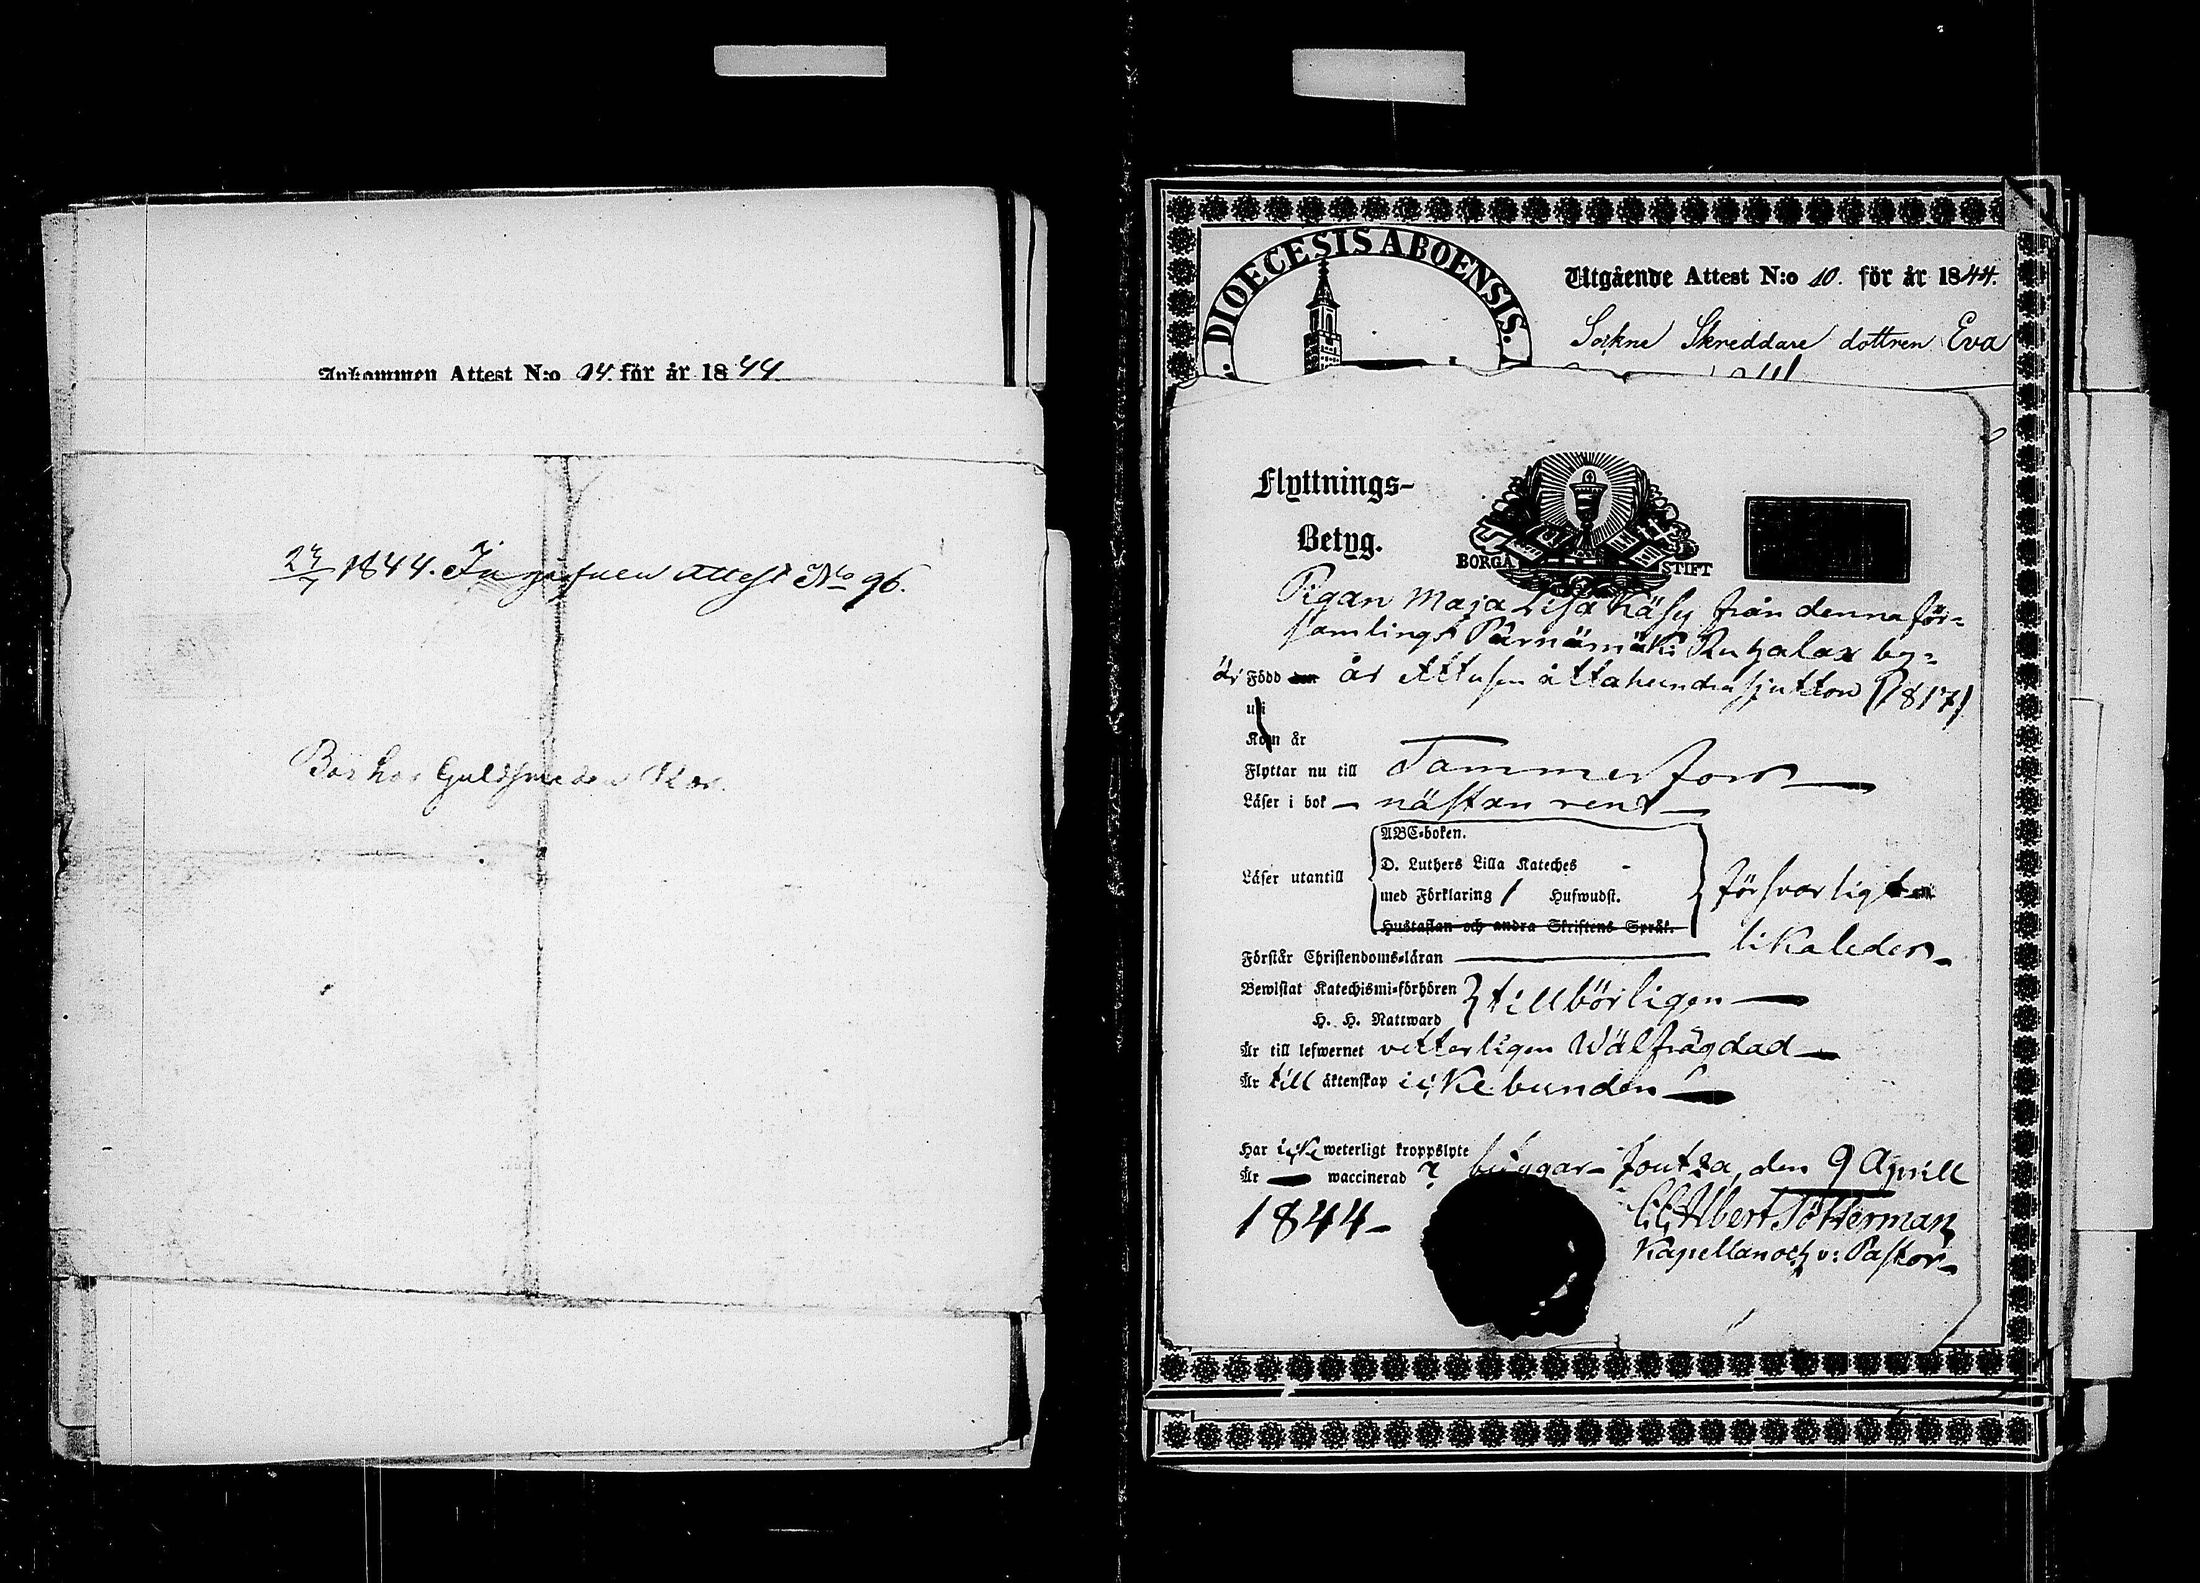 Ankommen Attest N:o 94. för år 1844.
24/7 1844. Ingifven attest No 96.
Bor hos Guldsmeden Ros.
DIOECESIS ABOENSIS.
Utgående Attest N:o 10. för år 1844.
Sockne Skreddare dottren Eva
Flyttnings-
Betyg.
BORGÅ STIFT
Pigan Maja Lisa Käsy från denna för-
samlings Pärnämäki Rutzalax by-
är Född den år Ettusen åttahundra sjutton (1817)
uti
Kom år
Flyttar nu till Tammerfors
Läser i bok nästan rent
Läser utantill
ABC-boken.
D. Luthers Lilla Kateches
med Förklaring / Hufwudst.
Hustaflan och andra Skriftens Språk.
försvarligt
Förstår Christendoms-läran likaledes
Bewistat Katechismi-förhören
H. H. Nattward
tillbörligen
Är till lefwernet vitterligen Wälfrägdad
Är till äktenskap icke bunden
Har icke weterligt kroppslyte
Är waccinerad ? Joutza, den 9 Aprill
1844-
Albert Tötterman
Kapellan och v: Pastor